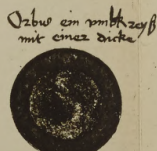 Orbis ein umbkreyß
mit einer dicke